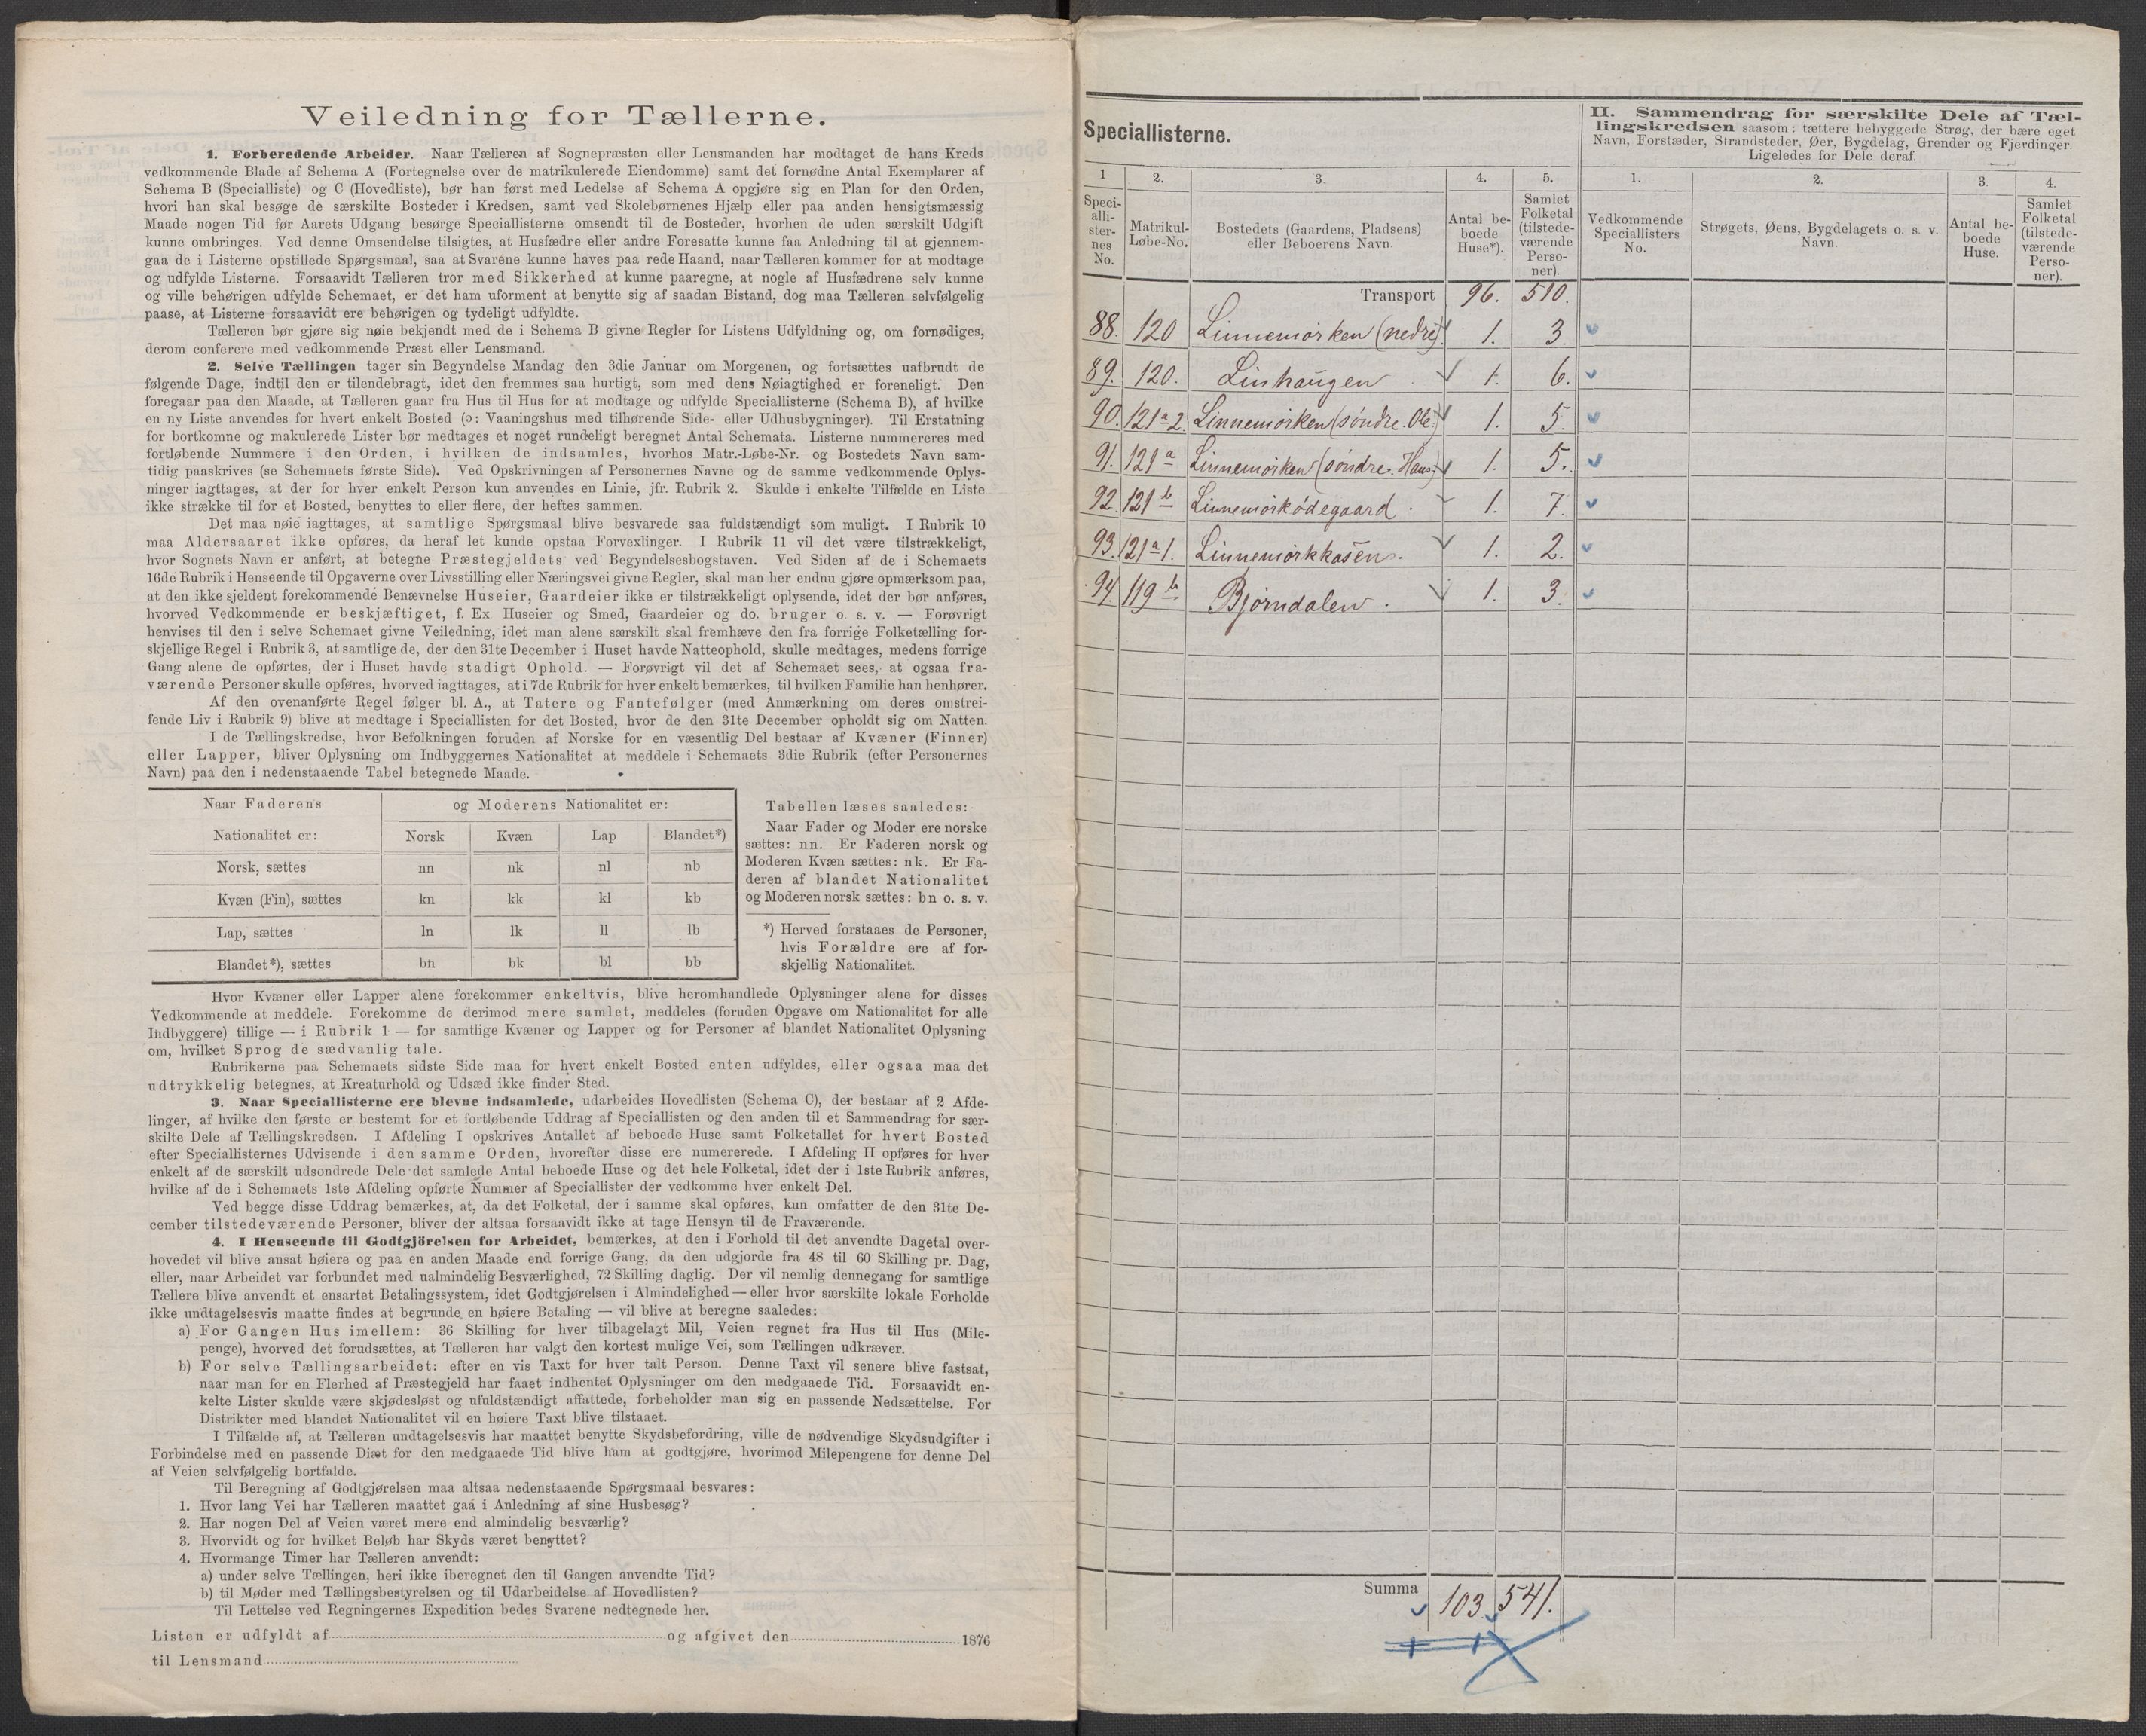 Veiledning for Tællerne.
1. Forberedende Arbeider. Naar Tælleren af Sognepræsten eller Lensmanden har modtaget de hans Kreds
vedkommende Blade af Schema A (Fortegnelse over de matrikulerede Eiendomme) samt det fornødne Antal Exemplarer af
Schema B (Specialliste) og C (Hovedliste), bør han først med Ledelse af Schema A opgjøre sig en Plan for den Orden,
hvori han skal besøge de særskilte Bosteder i Kredsen, samt ved Skolebørnenes Hjælp eller paa anden hensigtsmæssig
Maade nogen Tid før Aarets Udgang besørge Speciallisterne omsendt til de Bosteder, hvorhen de uden særskilt Udgift
kunne ombringes. Ved denne Omsendelse tilsigtes, at Husfædre eller andre Foresatte kunne faa Anledning til at gjennem-
gaa de i Listerne opstillede Spørgsmaal, saa at Svarene kunne haves paa rede Haand, naar Tælleren kommer for at modtage
og udfylde Listerne. Forsaavidt Tælleren tror med Sikkerhed at kunne paaregne, at nogle af Husfædrene selv kunne
og ville behørigen udfylde Schemaet, er det ham uforment at benytte sig af saadan Bistand, dog maa Tælleren selvfølgelig
paase, at Listerne forsaavidt ere behørigen og tydeligt udfyldte.
Tælleren bør gjøre sig nøie bekjendt med de i Schema B givne Regler for Listens Udfyldning og, om fornødiges,
derom conferere med vedkommende Præst eller Lensmand.
2. Selve Tællingen tager sin Begyndelse Mandag den 3die Januar om Morgenen, og fortsættes uafbrudt de
følgende Dage, indtil den er tilendebragt, idet den fremmes saa hurtigt, som med dens Nøiagtighed er foreneligt. Den
foregaar paa den Maade, at Tælleren gaar fra Hus til Hus for at modtage og udfylde Speciallisterne (Schema B), af hvilke
en ny Liste anvendes for hvert enkelt Bosted (ɔ: Vaaningshus med tilhørende Side- eller Udhusbygninger). Til Erstatning
for bortkomne og makulerede Lister bør medtages et noget rundeligt beregnet Antal Schemata. Listerne nummereres med
fortløbende Nummere i den Orden, i hvilken de indsamles, hvorhos Matr.-Løbe-Nr. og Bostedets Navn sam-
tidig paaskrives (se Schemaets første Side). Ved Opskrivningen af Personernes Navne og de samme vedkommende Oplys-
ninger iagttages, at der for hver enkelt Person kun anvendes en Linie, jfr. Rubrik 2. Skulde i enkelte Tilfælde en Liste
ikke strække til for et Bosted, benyttes to eller flere, der heftes sammen.
Det maa nøie iagttages, at samtlige Spørgsmaal blive besvarede saa fuldstændigt som muligt. I Rubrik 10
maa Aldersaaret ikke opføres, da heraf let kunde opstaa Forvexlinger. I Rubrik 11 vil det være tilstrækkeligt,
hvor Sognets Navn er anført, at betegne Præstegjeldets ved Begyndelsesbogstaven. Ved Siden af de i Schemaets
16de Rubrik i Henseende til Opgaverne over Livsstilling eller Næringsvei givne Regler, skal man her endnu gjøre opmærksom paa,
at den ikke sjeldent forekommende Benævnelse Huseier, Gaardeier ikke er tilstrækkeligt oplysende, idet der bør anføres,
hvorved Vedkommende er beskjæftiget, f. Ex Huseier og Smed, Gaardeier og do. bruger o. s. v. — Forøvrigt
henvises til den i selve Schemaet givne Veiledning, idet man alene særskilt skal fremhæve den fra forrige Folketælling for-
skjellige Regel i Rubrik 3, at samtlige de, der den 31te December i Huset havde Natteophold, skulle medtages, medens forrige
Gang alene de opførtes, der i Huset havde stadigt Ophold. — Forøvrigt vil det af Schemaet sees, at ogsaa fra-
værende Personer skulle opføres, hvorved iagttages, at i 7de Rubrik for hver enkelt bemærkes, til hvilken Familie han henhører.
Af den ovenanførte Regel følger bl. A., at Tatere og Fantefølger (med Anmærkning om deres omstrei-
fende Liv i Rubrik 9) blive at medtage i Speciallisten for det Bosted, hvor de den 31te December opholdt sig om Natten.
I de Tællingskredse, hvor Befolkningen foruden af Norske for en væsentlig Del bestaar af Kvæner (Finner)
eller Lapper, bliver Oplysning om Indbyggernes Nationalitet at meddele i Schemaets 3die Rubrik (efter Personernes
Navn) paa den i nedenstaaende Tabel betegnede Maade.
Naar Faderens og Moderens Nationalitet er:
Nationalitet er: Norsk Kvæn Lap Blandet*)
Norsk, sættes nn nk nl nb
Kvæn (Fin), sættes kn kk kl kb
Lap, sættes ln lk ll lb
Blandet*), sættes bn bk bl bb
Tabellen læses saaledes:
Naar Fader og Moder ere norske
sættes: nn. Er Faderen norsk og
Moderen Kvæn sættes: nk. Er Fa-
deren af blandet Nationalitet
og Moderen norsk sættes: bn o. s. v.
*) Herved forstaaes de Personer,
hvis Forældre ere af for-
skjellig Nationalitet.
Hvor Kvæner eller Lapper alene forekommer enkeltvis, blive heromhandlede Oplysninger alene for disses
Vedkommende at meddele. Forekomme de derimod mere samlet, meddeles (foruden Opgave om Nationalitet for alle
Indbyggere) tillige — i Rubrik 1 — for samtlige Kvæner og Lapper og for Personer af blandet Nationalitet Oplysning
om, hvilket Sprog de sædvanlig tale.
Rubrikerne paa Schemaets sidste Side maa for hvert enkelt Bosted enten udfyldes, eller ogsaa maa det
udtrykkelig betegnes, at Kreaturhold og Udsæd ikke finder Sted.
3. Naar Speciallisterne ere blevne indsamlede, udarbeides Hovedlisten (Schema C), der bestaar af 2 Afde-
linger, af hvilke den første er bestemt for et fortløbende Uddrag af Speciallisten og den anden til et Sammendrag for sær-
skilte Dele af Tællingskredsen. I Afdeling I opskrives Antallet af beboede Huse samt Folketallet for hvert Bosted
efter Speciallisternes Udvisende i den samme Orden, hvorefter disse ere numererede. I Afdeling II opføres for hver
enkelt af de særskilt udsondrede Dele det samlede Antal beboede Huse og det hele Folketal, idet der i 1ste Rubrik anføres,
hvilke af de i Schemaets 1ste Afdeling opførte Nummer af Speciallister der vedkomme hver enkelt Del.
Ved begge disse Uddrag bemærkes, at, da det Folketal, der i samme skal opføres, kun omfatter de den 31te De-
cember tilstedeværende Personer, bliver der altsaa forsaavidt ikke at tage Hensyn til de Fraværende.
4. I Henseende til Godtgjörelsen for Arbeidet, bemærkes, at den i Forhold til det anvendte Dagetal over-
hovedet vil blive ansat høiere og paa en anden Maade end forrige Gang, da den udgjorde fra 48 til 60 Skilling pr. Dag,
eller, naar Arbeidet var forbundet med ualmindelig Besværlighed, 72 Skilling daglig. Der vil nemlig dennegang for samtlige
Tællere blive anvendt et ensartet Betalingssystem, idet Godtgjørelsen i Almindelighed — eller hvor særskilte lokale Forholde
ikke undtagelsesvis maatte findes at begrunde en høiere Betaling — vil blive at beregne saaledes:
a) For Gangen Hus imellem: 36 Skilling for hver tilbagelagt Mil, Veien regnet fra Hus til Hus (Mile-
penge), hvorved det forudsættes, at Tælleren har valgt den kortest mulige Vei, som Tællingen udkræver.
b) For selve Tællingsarbeidet: efter en vis Taxt for hver talt Person. Denne Taxt vil senere blive fastsat,
naar man for en Flerhed af Præstegjeld har faaet indhentet Oplysninger om den medgaaede Tid. Forsaavidt en-
kelte Lister skulde være skjødesløst og ufuldstændigt affattede, forbeholder man sig en passende Nedsættelse. For
Distrikter med blandet Nationalitet vil en høiere Taxt blive tilstaaet.
I Tilfælde af, at Tælleren undtagelsesvis har maattet benytte Skydsbefordring, ville de nødvendige Skydsudgifter i
Forbindelse med en passende Diæt for den medgaaede Tid blive ham at godtgjøre, hvorimod Milepengene for denne Del
af Veien selvfølgelig bortfalde.
Til Beregning af Godtgjørelsen maa altsaa nedenstaaende Spørgsmaal besvares:
1. Hvor lang Vei har Tælleren maattet gaa i Anledning af sine Husbesøg?
2. Har nogen Del af Veien været mere end almindelig besværlig?
3. Hvorvidt og for hvilket Beløb har Skyds været benyttet?
4. Hvormange Timer har Tælleren anvendt:
a) under selve Tællingen, heri ikke iberegnet den til Gangen anvendte Tid?
b) til Møder med Tællingsbestyrelsen og til Udarbeidelse af Hovedlisten?
Til Lettelse ved Regningernes Expedition bedes Svarene nedtegnede her.
Listen er udfyldt af og afgivet den 1876
til Lensmand
Speciallisterne.
II. Sammendrag for særskilte Dele af Tæl-
lingskredsen saasom: tættere bebyggede Strøg, der bære eget
Navn, Forstæder, Strandsteder, Øer, Bygdelag, Grender og Fjerdinger.
Ligeledes for Dele deraf.
1 2. 3. 4. 5. 1. 2. 3. 4.
Speci-
alli-
ster-
nes
No.
Matrikul-
Løbe-No.
Bostedets (Gaardens, Pladsens)
eller Beboerens Navn.
Antal be-
boede
Huse*).
Samlet
Folketal
(tilstede-
værende
Perso-
ner).
Vedkommende
Speciallisters
No.
Strøgets, Øens, Bygdelagets o. s. v.
Navn.
Antal be-
boede
Huse.
Samlet
Folketal
(tilstede-
værende
Perso-
ner).
Transport 96. 510.
88. 120 Linnemorken (nedre) 1. 3.
89. 120. Linhaugen 1. 6.
90. 121a2. Linnemorken (søndre. Ole.) 1. 5.
91. 121a Linnemorken (søndre. Hans.) 1. 5.
92. 121b Linnemorkødegaard. 1. 7.
93. 121a1. Linnemorkkasen. 1. 2.
94. 119b Bjørndalen. 1. 3.
Summa 103. 541.